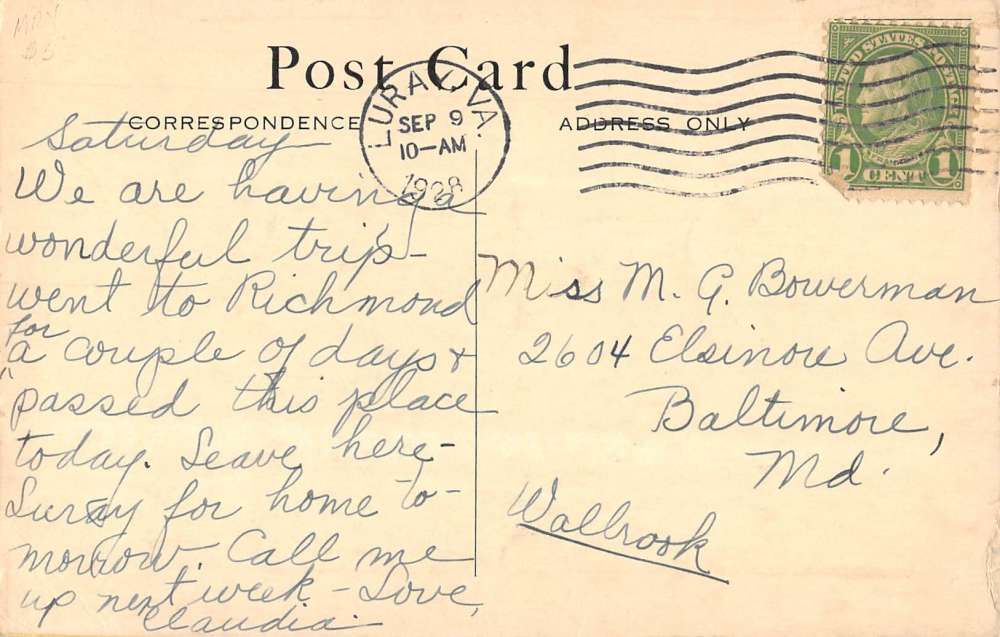 Post Card
CORRESPONDENCE
ADDRESS ONLY
LURAY, VA.
SEP 9
10-AM
1928
UNITED STATES POSTAGE
FRANKLIN
1 CENT 1
Saturday
We are having a
wonderful trip-
went to Richmond
for
a couple of days &
passed this place
today. Leave here-
Luray for home to-
morrow. Call me
up next week - Love,
Claudia.
Miss M. G. Bowerman
2604 Elsinore Ave.
Baltimore,
Md.
Walbrook